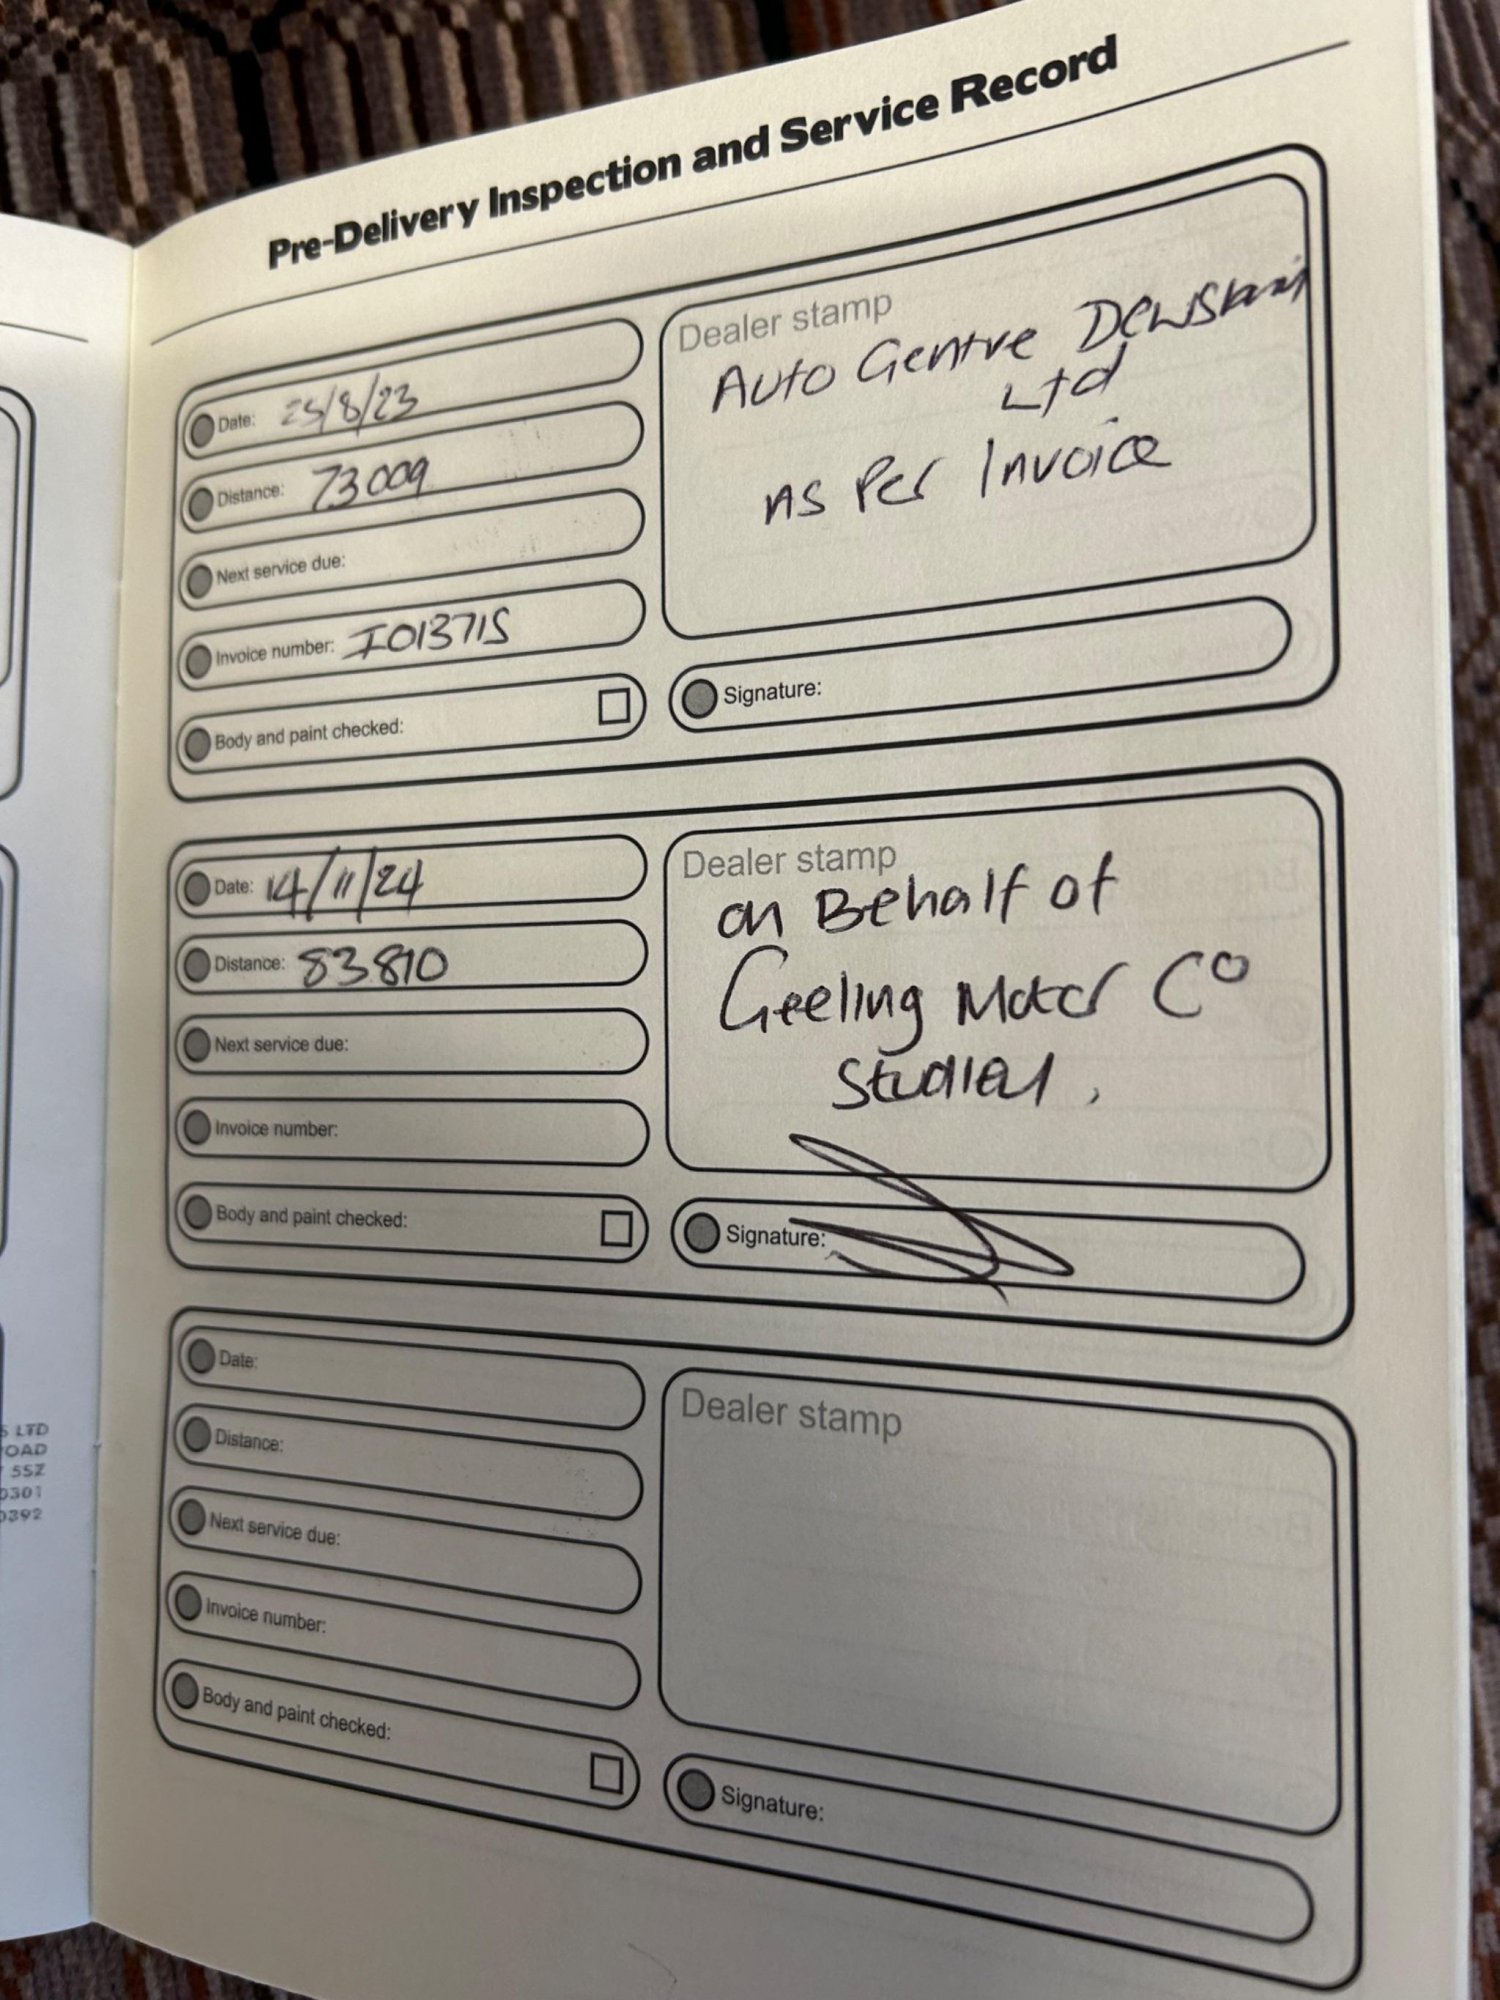 Pre-Delivery Inspection and Service Record
Date: 25/8/23
Distance: 73009
Next service due:
Invoice number: I013715
Body and paint checked:
Dealer stamp
Auto Centre
Ltd
as Per Invoice
Signature:
Date: 14/11/24
Distance: 83810
Next service due:
Invoice number:
Body and paint checked:
Dealer stamp
on Behalf of
Motor Co
Signature:
Date:
Distance:
Next service due:
Invoice number:
Body and paint checked:
Dealer stamp
Signature:
LTD
OAD
5SZ
0301
0392